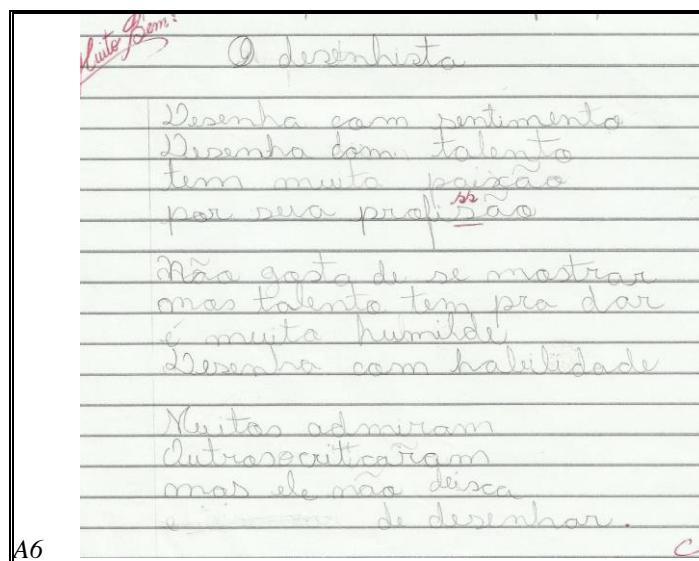 Muito Bem!
O desenhista
Desenha com sentimento
Desenha com talento
tem muita paixão
por seua profisão
ss
Não gosta de se mostrar
mas talento tem pra dar
é muita humilde
Desenha com habilidade
Muitos admiram
Outros criticaram
mas ele não deixa
de desenhar.
A6
C